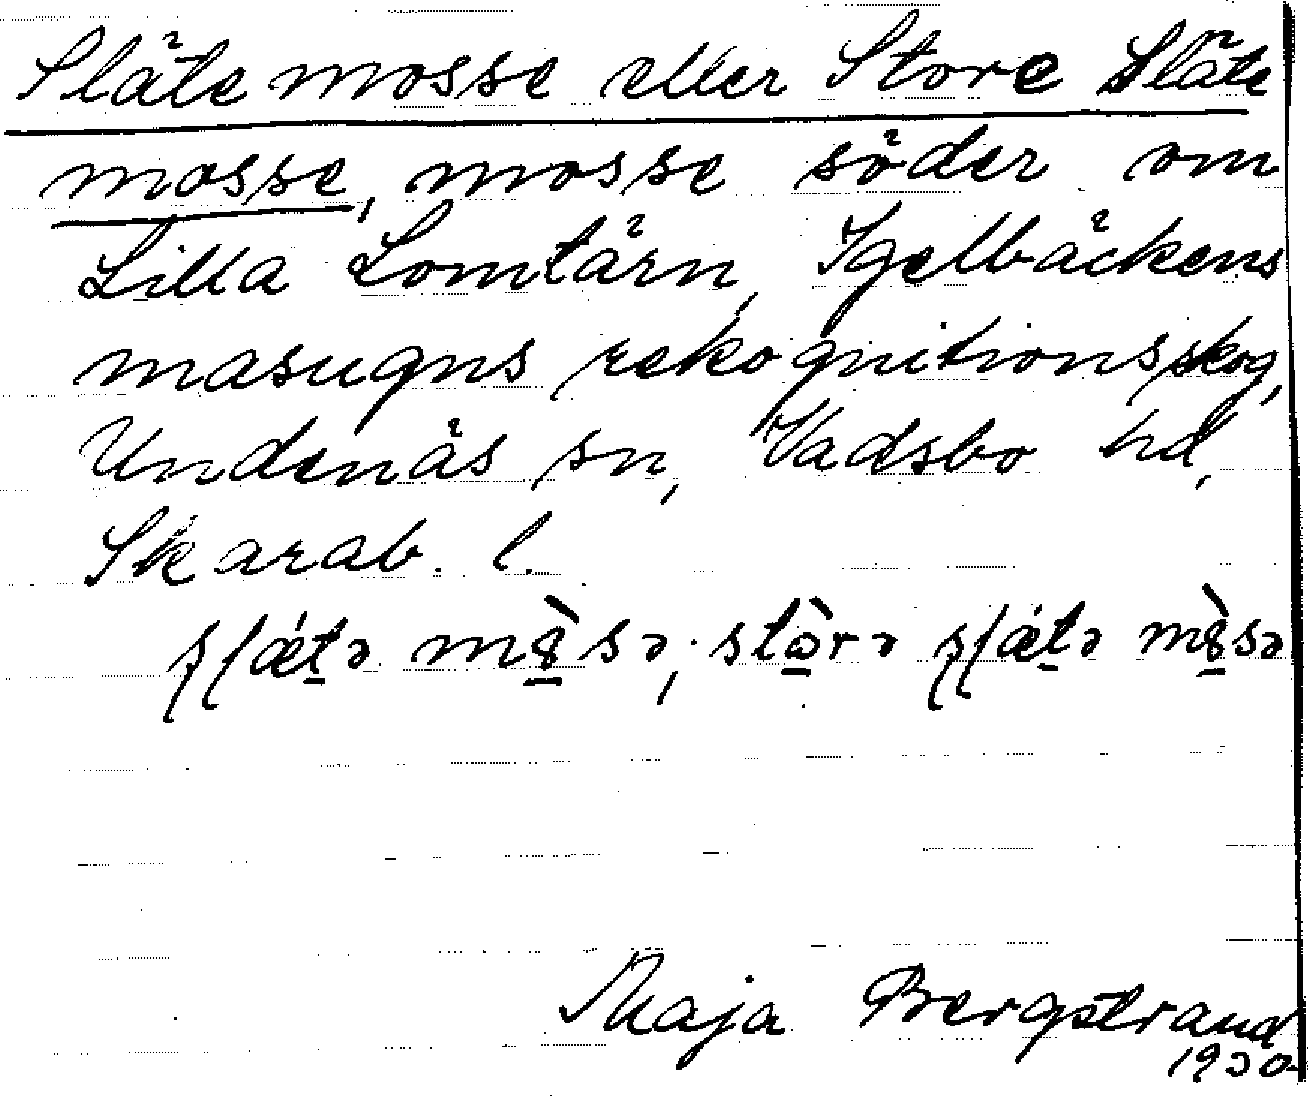 Släte mosse eller Store Släte
mosse, mosse söder om
Lilla Lomtärn, Igelbäckens
masugns rekognitionsskog,
Undenäs sn, Vadsbo hd,
Skarab. l.
Maja Bergstrand
1930